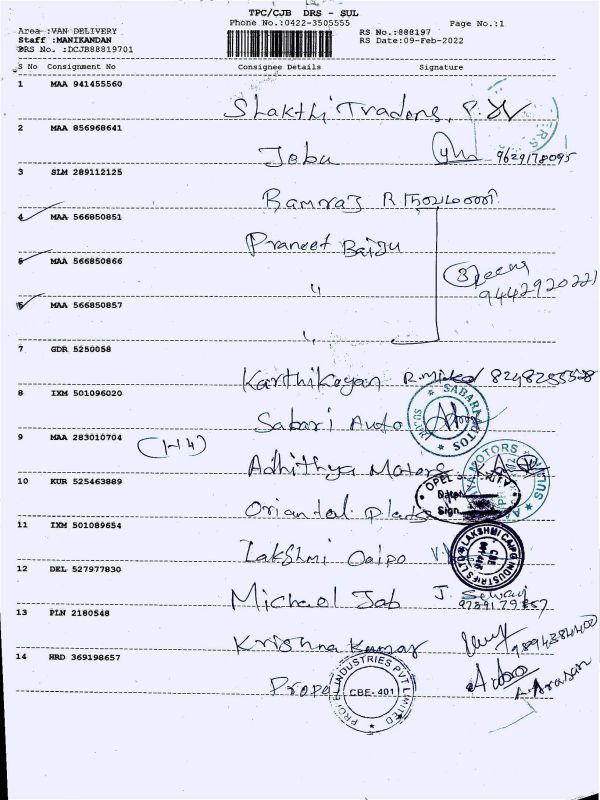 TPC/CJB DRS - SUL
Phone No.:0422-3505555
Page No.:1
Area :VAN DELIVERY
Staff :MANIKANDAN
DRS No. :DCJB88819701
RS No.:888197
RS Date:09-Feb-2022
S No Consignment No Consignee Details Signature
1 MAA 941455560
Shakthi Traders.
2 MAA 856968641
Jobu 9629178095
3 SLM 289112125
Ramraj R
4 MAA 566850851
Praneet Baiju
5 MAA 566850866
"
9442920221
6 MAA 566850857
"
7 GDR 5250058
Karthikeyan 8248255528
8 IXM 501096020
Sabari Auto
SABARI AUTOS
9 MAA 283010704
(H4)
Adhithya Motors
10 KUR 525463889
Oriental
Date:
Sign
11 IXM 501089654
Lakshmi Caipo
LAKSHMI CAIPO INDUSTRIES LTD
12 DEL 527977830
Michael Job J. Selvaj
9789179257
13 PLN 2180548
Krishna Kumar
9894384400
14 HRD 369198657
Propel
PROPEL INDUSTRIES PVT LIMITED
CBE-401
Arasan